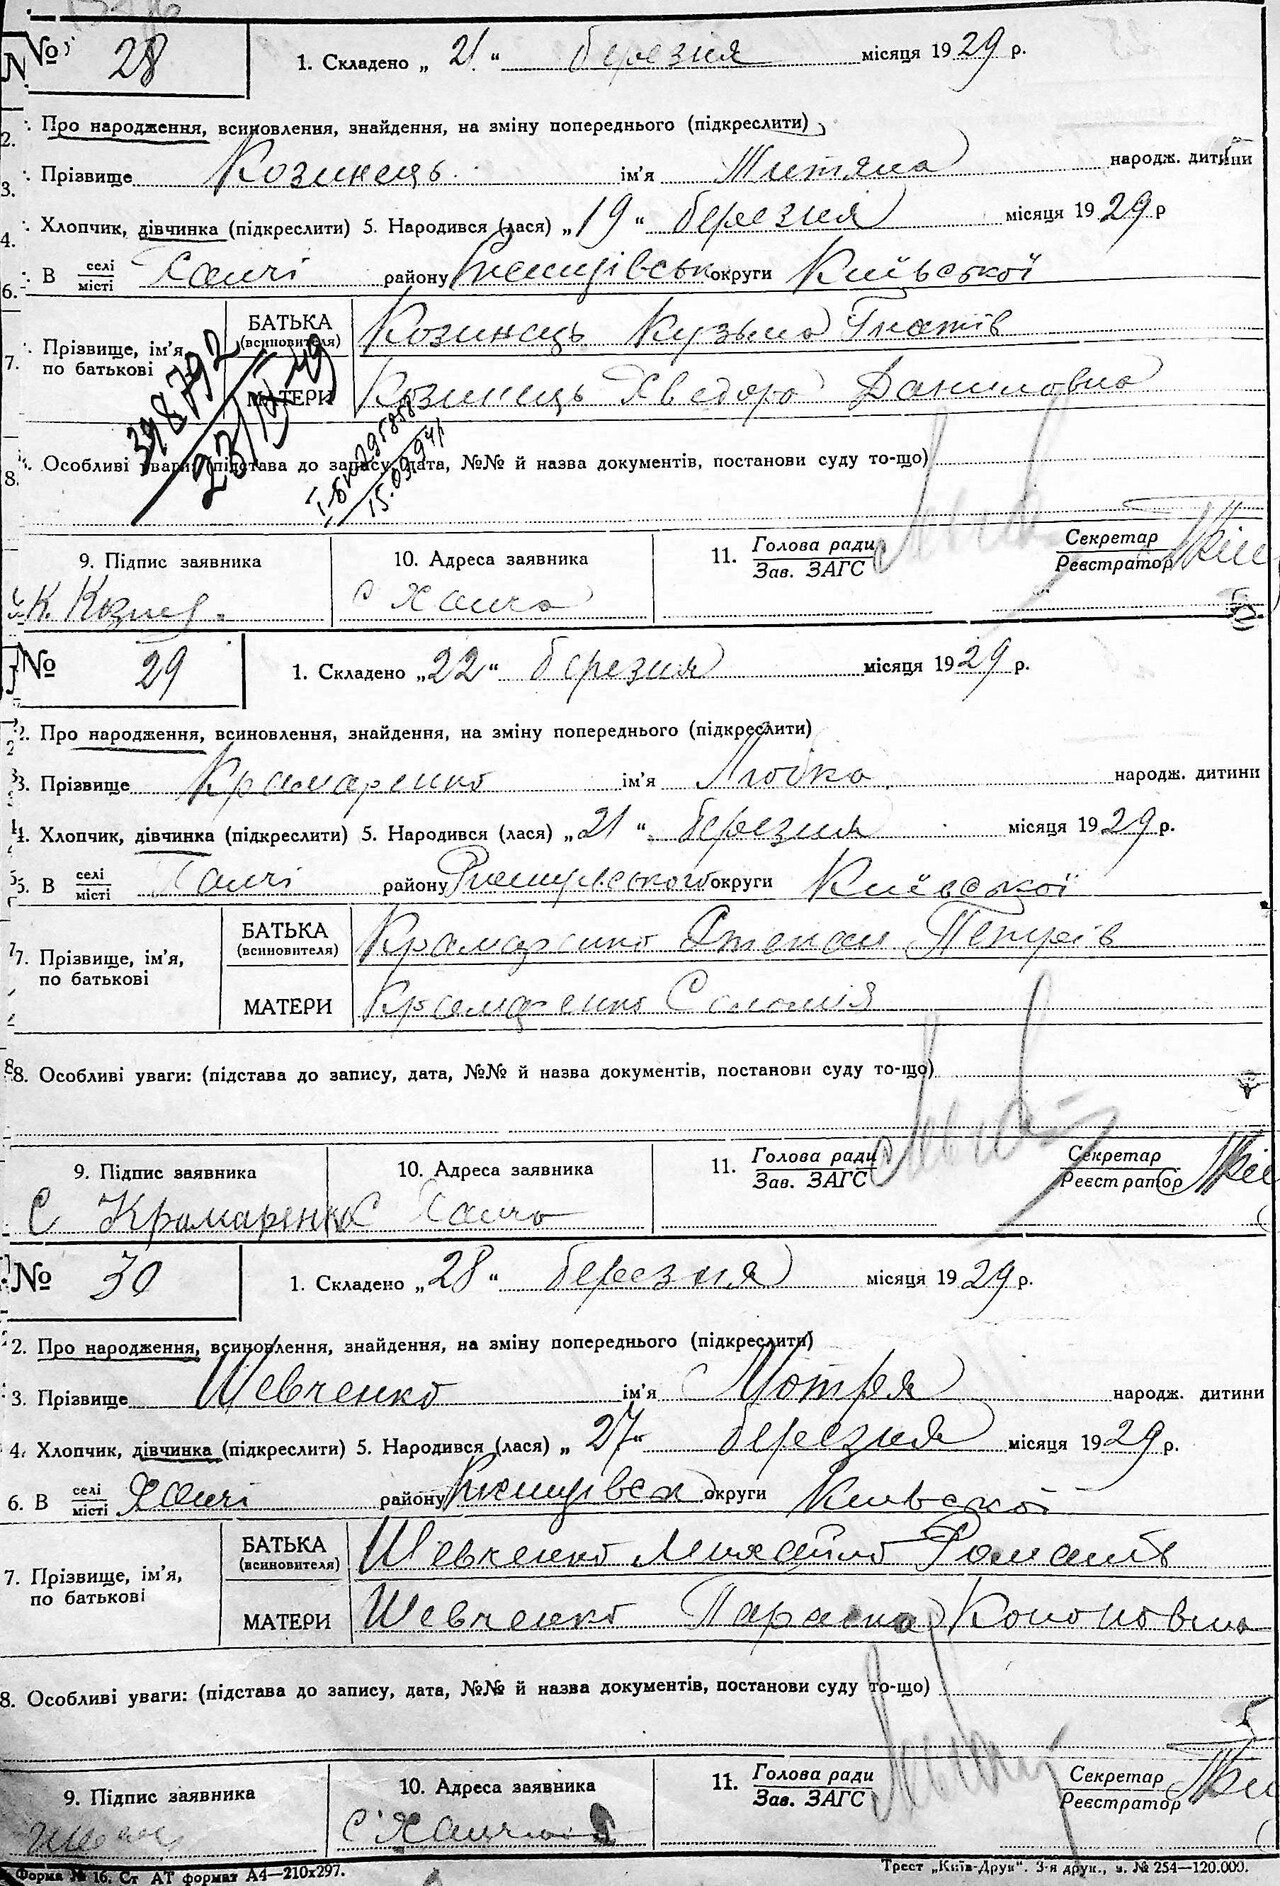 № 28
1. Складено „21“ березня місяця 1929 р.
2. Про народження, всиновлення, знайдення, на зміну попереднього (підкреслити)
3. Прізвище Козинець ім'я Титяна народж. дитини
4. Хлопчик, дівчинка (підкреслити) 5. Народився (лася) „19“ березня місяця 1929 р
6. В селі місті Халчі району Ржищівськ округи Київської
7. Прізвище, ім'я, по батькові
БАТЬКА (всиновителя) Козинець Кузьма Гнатів
МАТЕРИ Козинець Хведора Даниловна
398792
23/IV 49
I-БК 295858
15.03.94
8. Особливі уваги: (підстава до запису, дата, №№ й назва документів, постанови суду то-що)
9. Підпис заявника 10. Адреса заявника 11. Голова ради Зав. ЗАГС Секретар Реєстратор
К. с Халча
№ 29
1. Складено „22“ березня місяця 1929 р.
2. Про народження, всиновлення, знайдення, на зміну попереднього (підкреслити)
3. Прізвище Крамаренко ім'я Любка народж. дитини
4. Хлопчик, дівчинка (підкреслити) 5. Народився (лася) „21“ березня місяця 1929 р.
6. В селі місті Халчі району Ржищівського округи Київської
7. Прізвище, ім'я, по батькові
БАТЬКА (всиновителя) Крамаренко Степан Петрів
МАТЕРИ Крамаренко Соломія
8. Особливі уваги: (підстава до запису, дата, №№ й назва документів, постанови суду то-що)
9. Підпис заявника 10. Адреса заявника 11. Голова ради Зав. ЗАГС Секретар Реєстратор
С Крамаренко С Халча
№ 30
1. Складено „28“ березня місяця 1929 р.
2. Про народження, всиновлення, знайдення, на зміну попереднього (підкреслити)
3. Прізвище Шевченко ім'я Мотря народж. дитини
4. Хлопчик, дівчинка (підкреслити) 5. Народився (лася) „27“ березня місяця 1929 р.
6. В селі місті Халчі району Ржищівськ округи Київської
7. Прізвище, ім'я, по батькові
БАТЬКА (всиновителя) Шевченко Михайло Романів
МАТЕРИ Шевченко Параска Кононовна
8. Особливі уваги: (підстава до запису, дата, №№ й назва документів, постанови суду то-що)
9. Підпис заявника 10. Адреса заявника 11. Голова ради Зав. ЗАГС Секретар Реєстратор
С Халча
Форма № 16. Ст АТ формат А4—210х297. Трест „Київ-Друк“. 3-я друк., з. № 254—120.000.